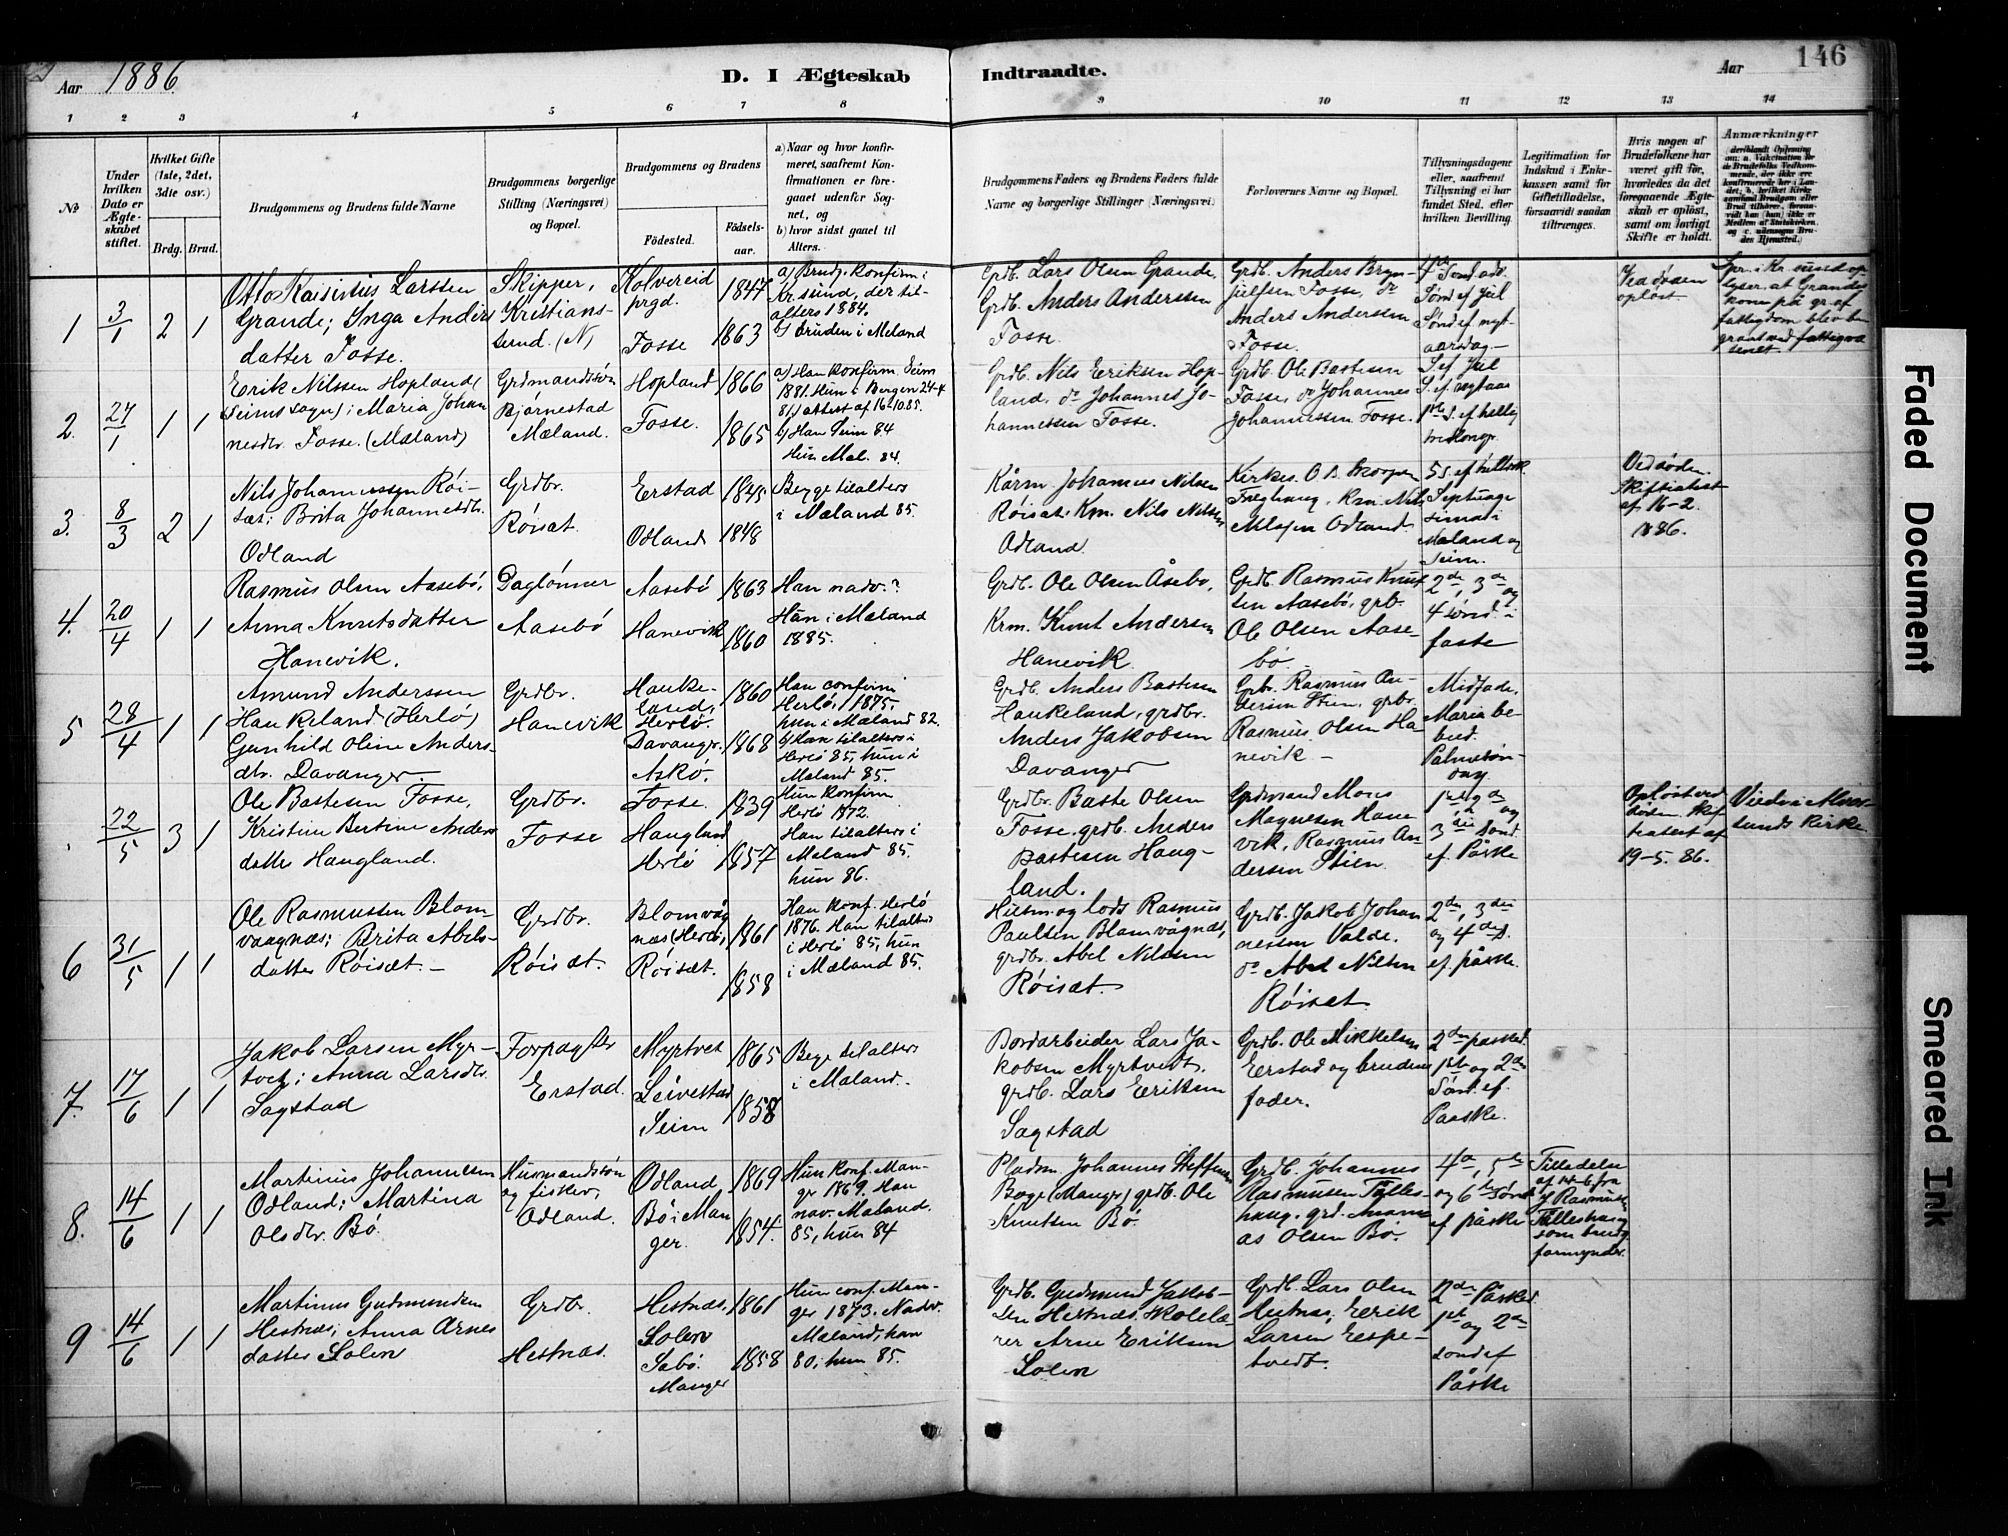 Aar 1886
D. I Ægteskab
Indtraadte.
Aar
146
1 2 3 4 5 6 7 8 9 10 11 12 13 14
№
Under hvilken Dato er Ægteskabet stiftet.
Hvilket Gifte (1ste, 2det, 3die osv.)
Brdg. Brud.
Brudgommens og Brudens fulde Navne
Brudgommens borgerlige Stilling (Næringsvei) og Bopæl.
Brudgommens og Brudens
Födested.
Födselsaar.
a) Naar og hvor konfirmeret, saafremt Konfirmationen er foregaaet udenfor Sognet, og
b) hvor sidst gaaet til Alters.
Brudgommens Faders og Brudens Faders fulde Navne og borgerlige Stillinger (Næringsvei)
Forlovernes Navne og Bopæl.
Tillysningsdagene eller, saafremt Tillysning ei har fundet Sted, efter hvilken Bevilling.
Legitimation for Indskud i Enkekassen samt for Giftetilladelse, forsaavidt saadan tiltrænges.
Hvis nogen af Brudefolkene har været gift för, hvorledes da det foregaaende Ægteskab er oplöst, samt om lovligt Skifte er holdt.
Anmærkninger
1
3/1
2 1
Otto Larssen
Grande; Inga Anders
datter Fosse.
Skipper,
Kristians-
sund. (N)
Kolvereid
prgd.
Fosse
1847
1863
a) Brudg. konfirm i
Kr.sund, der til-
alters 1884.
b) bruden i Mæland
Grdb. Lars Olsen Grande,
Grdb. Anders Anderssen
Fosse.
Grdb. Anders Bryn-
julfsen Fosse, do
Anders Anderssen
Fosse.
Sönd ef Jul
Sönd ef nyt-
aarsdag-
Ved døden
opløst
2.
27/1
1 1
Erik Nilssen Hopland
(Seims sogn); Maria Johan
nesdtr. Fosse. (Mæland)
Grdmandssön
Bjørnestad
Mæland.
Hopland
Fosse.
1866
1865
a) Han konfirm. Seim
1881. Hun i Bergen 24-4
81, attest af 16-10 85.
b) Han Seim 84
Hun Mæl. 84.
Grdb. Nils Eriksen Hop-
land, do Johannes Jo-
hannessen Fosse.
Grdb. Ole Bastesen
Fosse, do Johannes
Johannessen Fosse.
S. ef Jul
S. ef nytaar
1ste S. ef hellig
trekongr.
3.
8/3
2 1
Nils Johannessen Röi-
sæt; Brita Johannesdtr.
Odland
Grdbr.
Röisæt
Erstad
Odland
1845
1848
Begge tilalters
i Mæland 85.
Kårm. Johannes Nilsen
Röisæt. Km. Nils Nilsen
Odland.
Kirkes. O B
Km Nils
Odland.
Septuage
sima i
Mæland og
Seim.
Ved døden.
Skifteattest
af 16-2.
1886.
4.
20/4
1 1
Rasmus Olsen Aasebö,
Anna Knutsdatter
Hanevik.
Daglönner
Aasebö
Aasebö
Hanevik
1863
1860
Han nadv.?
Hun i Mæland
1885.
Grdb. Ole Olsen Åsebø,
Krm. Knut Andersen
Hanevik
Grdb. Rasmus Knut
sen Aasebö, grb.
Ole Olsen Aase-
bö.
2den, 3die og
4 sönd. i
faste
5
28/4
1 1
Amund Anderssen
Haukeland (Herlö)
Gunhild Oline Anders-
dtr. Davanger
Grdbr.
Hanevik
Hauke-
land,
Herlö.
Davanger
Askö.
1860
1868
Han confirm
Herlö, 1875,
hun i Mæland 82.
b) Han tilalters i
Herlö 85, hun i
Mæland 85.
Grdb. Anders Bastesen
Haukeland, grdbr.
Anders Jakobsen
Davanger
Grbr. Rasmus An-
dersen Stien, grbr
Rasmus Olsen Ha
nevik -
Midfaste,
Maria be-
bud.
Palmesön-
dag
22/5
3 1
Ole Bastesen Fosse,
Kristine Bertine Anders
datter Haugland.
Grdbr.
Fosse
Fosse.
Haugland
Herlö
1839
1857
Hun konfirm
Herlö 1872.
Han tilalters i
Mæland 85.
hun 86.
Grdbr. Baste Olsen
Fosse. grdb. Anders
Bastesen Haug-
land.
Grdmand Mons
Magnesen Hane
vik, Rasmus An
dersen Stien.
1ste, 2den og
3die Sönd.
ef. Påske
Opløst ved
døden. Skif
teattest af
19-5. 86.
Viede i Alver-
sunds kirke.
6
31/5
1 1
Ole Rasmussen Blom-
vaagnæs; Berita Abels-
datter Röisæt. -
Grdbr.
Röisæt.
Blomvåg
næs (Herlö)
Röisæt.
1861
1858
Han konf. Herlö
1876. Han tilalters
i Herlö 85, hun
i Mæland 85.
Husm. og lods Rasmus
Paulsen Blomvågnæs,
grdbr. Abel Nilssen
Röisæt.
Grdb. Jakob Johan
nessen Valde.
do Abel Nilsen
Röisæt
2den, 3die
og 4de S.
ef. påske.
7.
17/6
1 1
Jakob Larsen Myr-
tvet; Anna Larsdtr.
Sagstad
Forpagter
Erstad.
Myrtvet
Leivestad
Seim
1865
1858
Begge tilalters
i Mæland.
Bordarbeider Lars Ja-
kobsen Myrtvedt.
grdb. Lars Eriksen
Sagstad
Grdb. Ole Mikkelsen
Erstad og brudens
fader.
2den påsked
1ste og 2den
Sönd. ef.
Paaske.
8.
14/6
1 1
Martinus Johannesen
Odland; Martina
Olsdtr. Bö.
Husmandssön
og fisker,
Odland.
Odland
Bö i Man
ger.
1869
1854.
Hun konf. Man-
ger 1869. Han
nav. Mæland.
85, hun 84
Pladsm. Johannes Steffensen
Böge (Manger) grdb. Ole
Knutsen Bö.
Grdb. Johannes
Rasmusen Tylles-
haug, grd.
Olsen Bö.
4de, 5te
og 6te Sönd
ef påske
Tilledelse
af 14-6 fra
J Rasmusen
Tilleshaug
som brudg
formynder.
9
14/6
1 1
Martinus Gudmundsen
Hestnæs; Anna Arnes
datter Solem
Grdbr.
Hestnæs.
Hestnæs,
Solem
Sæbö.
Manger
1861
1858
Hun conf. Man-
ger 1873. Nadv.
Mæland, han
80, hun 85.
Grdb. Gudmund Jakob-
sen Hestnæs. Skolelæ-
rer Arne Eriksen
Solem
Grdb. Lars Olsen
Hestnæs, Erik
Larsen Espe-
tvedt.
2den Påsked
1ste og 2den
sönd ef
Påske
Faded Document
Smeared Ink